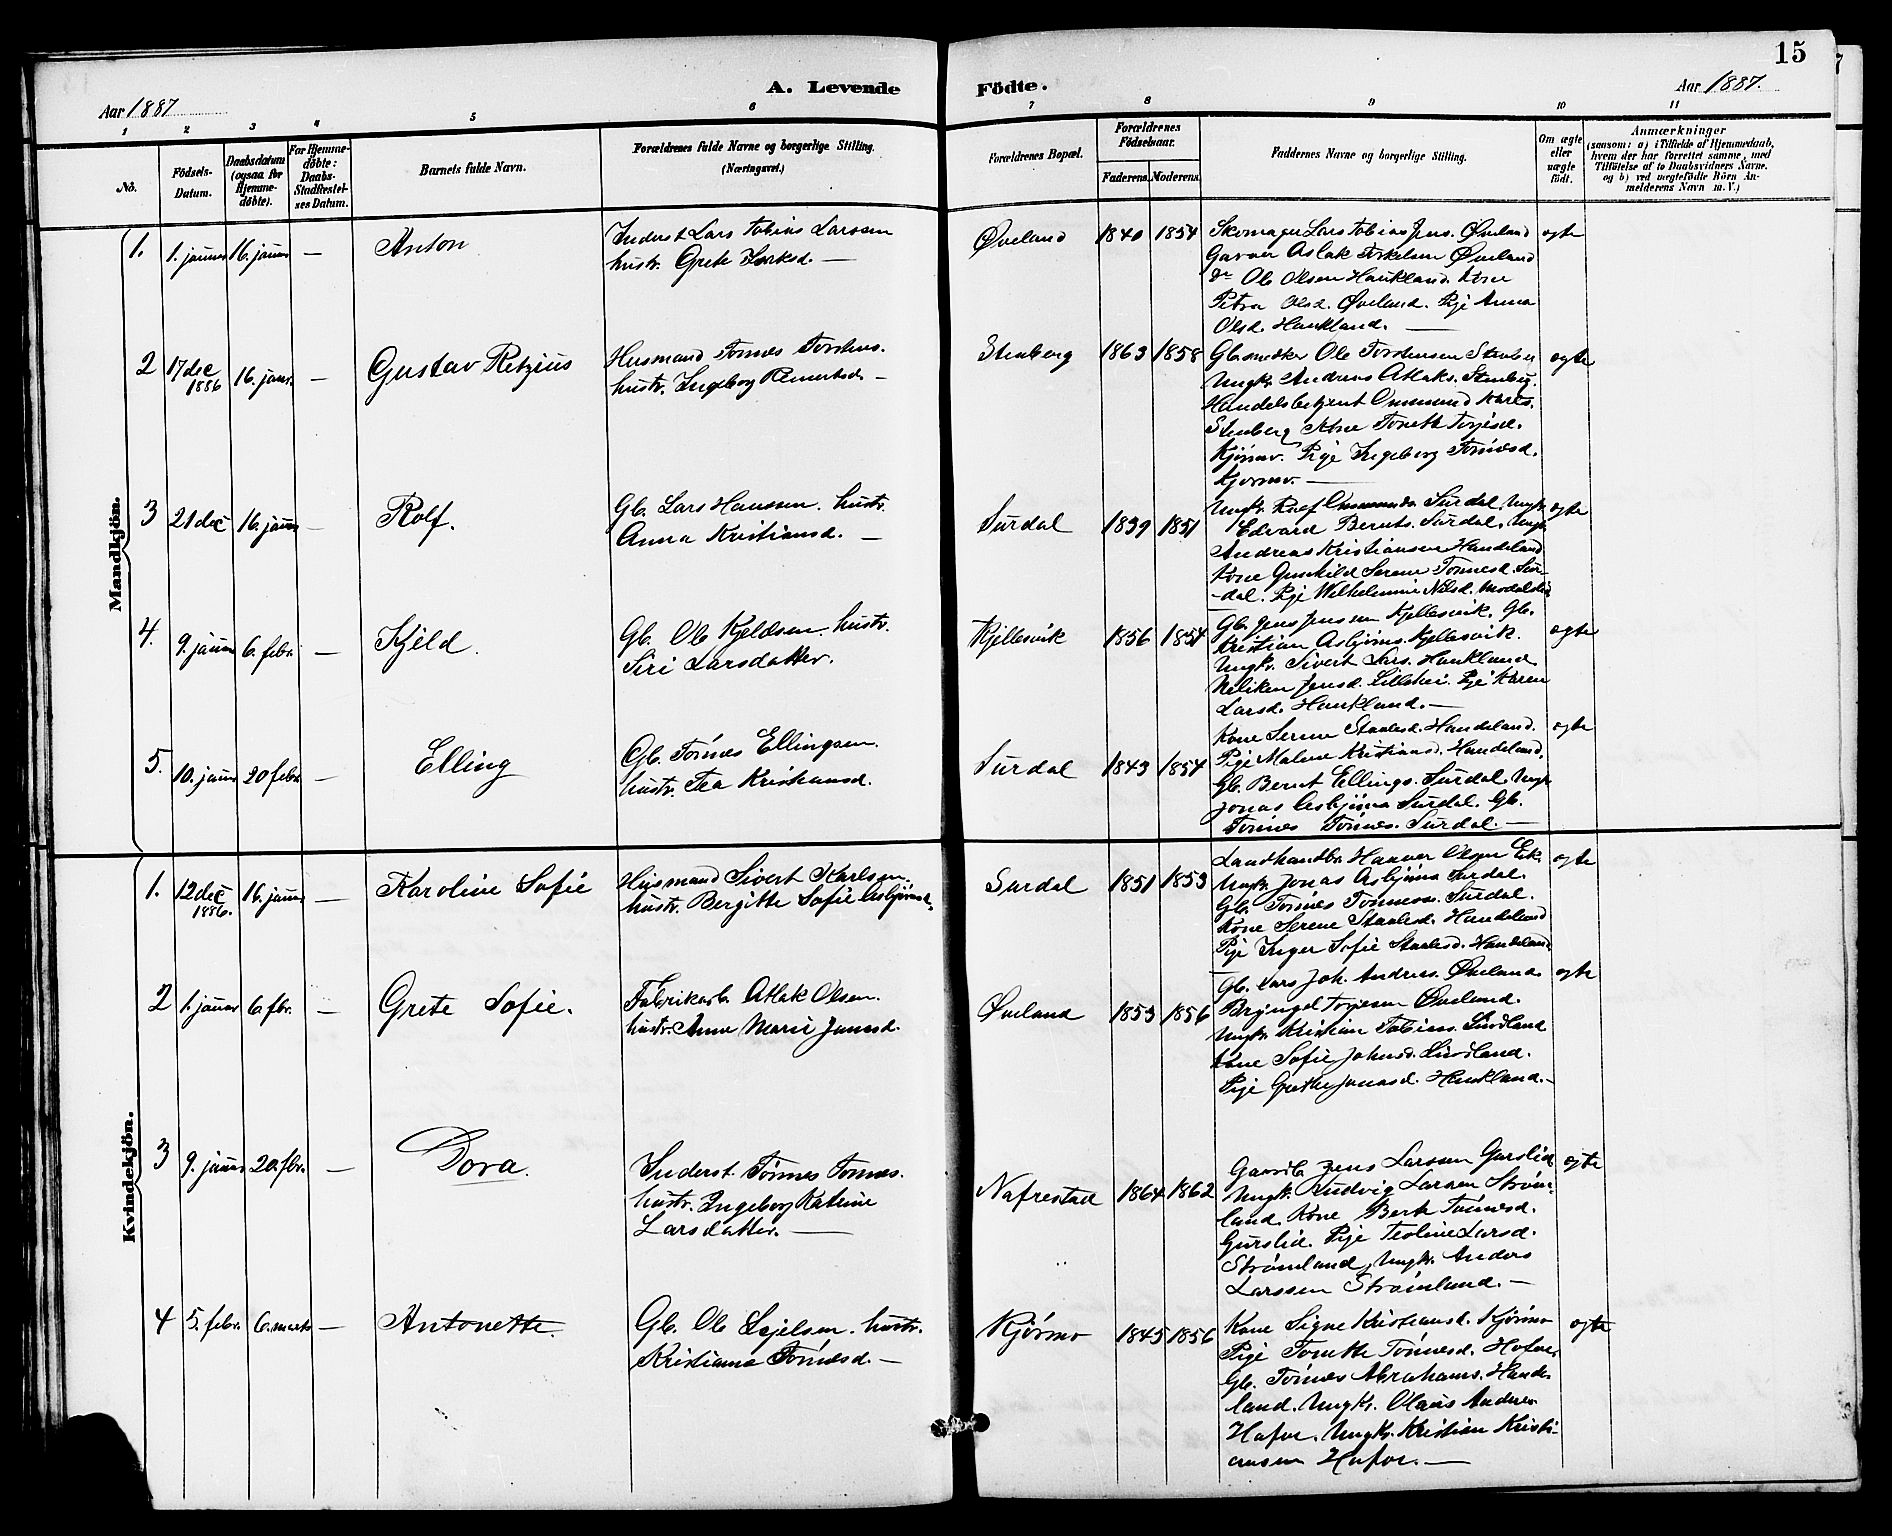 15
A. Levende Födte.
Aar 1887
Aar 1887.
1 2 3 4 5 6 7 8 9 10 11
No.
Födsels-Datum.
Daabsdatum (ogsaa for Hjemme-döbte).
For Hjemme-döbte: Daabs-Stadfæstel-ses Datum.
Barnets fulde Navn.
Forældrenes fulde Navne og borgerlige Stilling. (Næringsvei.)
Forældrenes Bopæl.
Forældrenes Födselsaar.
Faderens. Moderens.
Faddernes Navne og borgerlige Stilling.
Om ægte eller uægte födt.
Anmærkninger
(saasom: a) i Tilfælde af Hjemmedaab,
hvem der har forrettet samme, med
Tilföielse af to Daabsvidners Navne.
og b) ved uægtefödte Börn An-
melderens Navn m. V.)
Mandkjön.
1. 1. januar 16. januar — Anton
Inderst Lars Tobias Larssen
hustr. Grete —
Øveland 1840 1854
Skomager Lars Tobias Jens. Øveland
Garver Aslak Torkelsen Øveland
Do Ole Olsen Haukland. Kone
Petra Olsd. Øveland. Pije Anna
Olsd. Haukland. —
ægte
2 17 dec 1886 16. janr. — Gustav Retzius
Husmand Tönnes Torstens.
hustr. Ingeborg Reinertsd. —
Stenberg 1863 1858
Gb. Ole Torstensen Stenber
Ungk. Andreas Aslaks. Stenberg.
Handelsbetjent Ommund Karls.
Stenberg Kone Tonette Torjesd.
Kjörmo. Pige Ingeborg Tönnesd.
Kjörmo. —
ægte
3 21 dec 16. januar — Rolf.
Gb. Lars Hanssen. hustr.
Anna Kristiansd. —
Surdal 1839 1851
Ungk. Ommunds. Surdal, Ungk.
Edvard Bernts. Surdal, Ungk.
Andreas Kristiansen Handeland
Kone Gunhild Serene Tönnesd. Sur-
-dal. Pije Wilhelmine Nilsd.
ægte
4. 9. januar 6. febr. — Kjeld.
Gb. Ole Kjeldsen. hustr.
Siri Larsdatter.
Kjellesvik 1856 1854
Gb. Jens Jensen Kjellesvik. Gb.
Kristian Asbjörns. Kjellesvik.
Ungk. Sivert Lars. Haukland
Jensd. Pije Karen
Larsd. Haukland. —
ægte
5. 10. januar 20 febr. — Elling
Gb. Tönnes Ellingsen.
hustr. Tea Kristiansd.
Surdal 1843 1854
Kone Serene Staalesd. Handeland.
Pije Malene Kristiansd. Handeland.
Gb. Bernt Ellings. Surdal, Ungk.
Jonas Asbjörns Surdal. Gb.
Tönnes Tönnes. Surdal. —
ægte
Kvindekjön.
1. 12 dec 1886. 16. januar — Karoline Sofie
Husmand Sivert Karlsen.
hustr. Bergitte Sofie Asbjörnsd.
Surdal 1851 1853
Landhandler Olsen Eik.
Ungk. Jonas Asbjörns Surdal.
Gb. Tönnes Tönnesen. Surdal.
Kone Serene Staalesd. Handeland
Pije Inger Sofie Staalesd. Handeland
ægte
2 1. januar 6. fbr. — Grete Sofie.
Fabrikarb. Aslak Olsen.
hustr. Anne Marie Jonasd.
Øveland 1853 1856
Gb. Lars Joh. Andreas. Øveland
Bryngel Torjesen Øveland.
Ungk. Kristian Tobias. Lindland
Kone Sofie Johnsd. Lindland.
Pije Grethe Jonasd. Haukland. —
ægte
3 9. januar 20. fbr. — Dora.
Inderst. Tönnes Tönnes.
hustr. Ingeborg Katrine
Larsdatter. —
Nafrestad 1864 1862
Gaardb. Jens Larssen Gurslid
Ungk. Ludvig Larsen Ström-
land. Kone Berte Tönnesd.
Gurslid. Pije Teoline Larsd.
Strömland, Ungk. Anders
Larssen Strömland. —
ægte
4 5. febr. 6. marts — Antonette.
Gb. Ole hustr.
Kristianna Tönnesd. —
Kjörmo 1845 1856
Kone Signe Kristiansd. Kjörmo
Pije Tonette Tönnesd. Hafoe.
Gb. Tönnes Abrahams. Hande-
land. Ungk. Olaus Anders
Hafoe. Ungk. Kristian Kristi-
ansen Hafoe. —
ægte